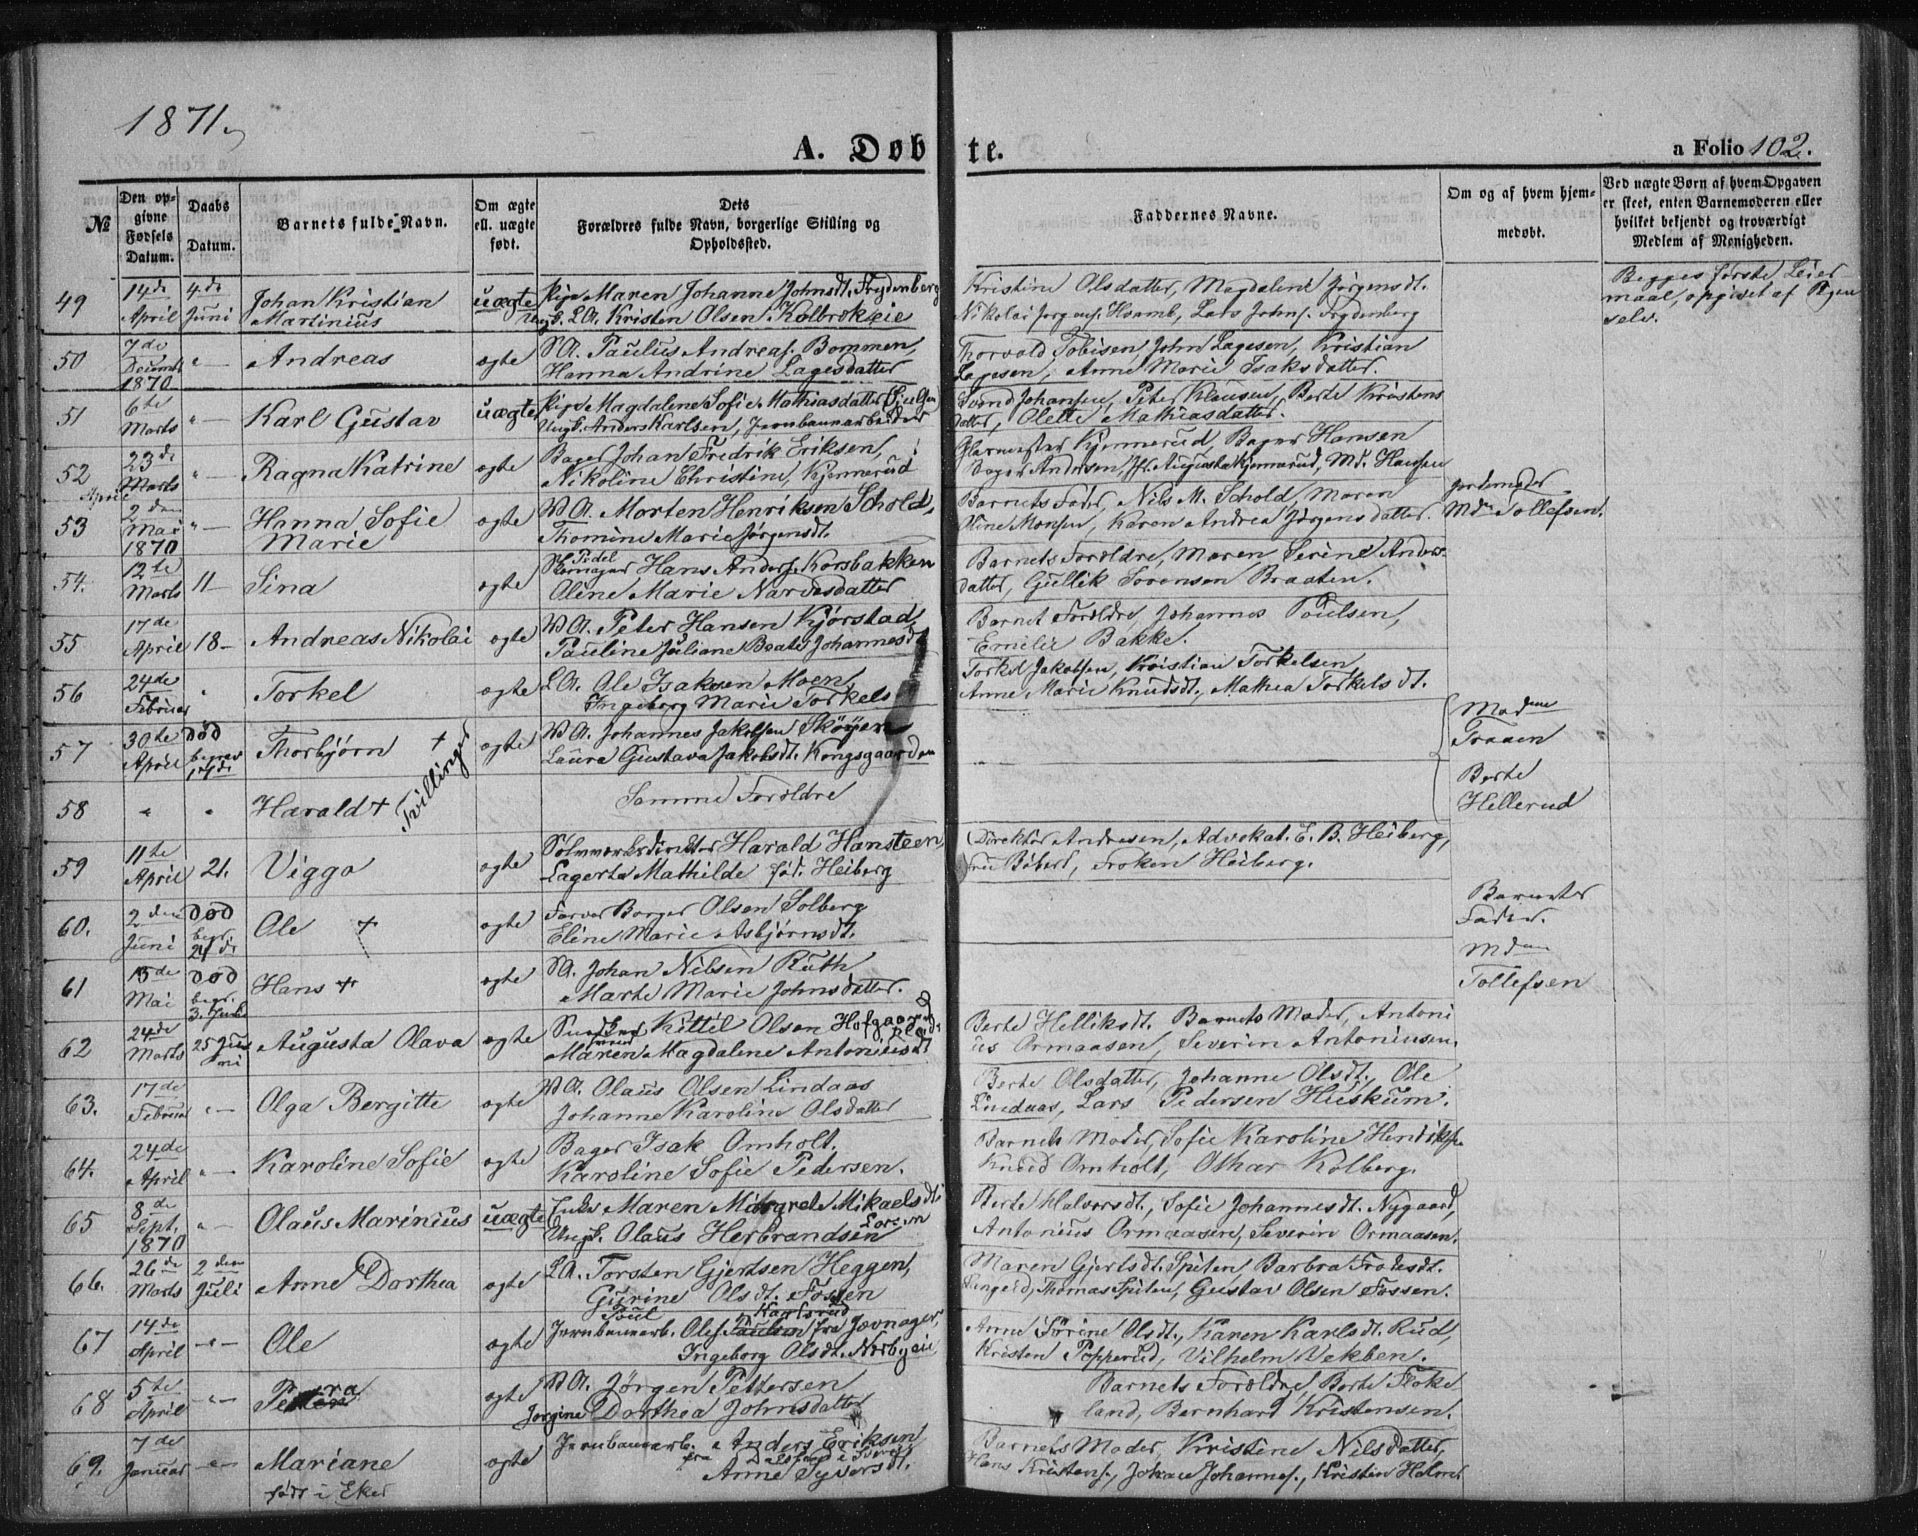 1871.
A. Døbte.
a Folio 102.
№
Den opgivne Fødsels Datum.
Daabs Datum.
Barnets fulde Navn.
Om ægte ell. uægte født.
Dets Forældres fulde Navn, borgerlige Stilling og Opholdsted.
Faddernes Navne.
Om og af hvem hjemmedøbt.
Ved uægte Børn af hvem Opgaven er skeet, enten Barnemoderen eller hvilket bekjendt og troværdigt Medlem af Menigheden.
49 14de April 4de Juni Johan Kristian Martinius uægte Pige Maren Johanne Johnsdt. Frydenberg
Ungk. LA. Kristen Olsen Kolbrekeie
Kristine Olsdatter, Magdalene Jørgensdt.
Nikolai Jørgens. Haamb, Lars Johns. Frydenberg
Begges første Leiermaal, opgivet af Pigen selv.
50 7de Decemb 1870 " — Andreas ægte SA. Paulus Andreas. Bommen,
Hanna Andrine Lagesdatter
Thorvald Tobisen, John Lagesen, Kristian
Lagesen, Anne Marie Isaksdatter.
51 6te Marts " — Karl Gustav uægte Pige Magdalene Sofie Mathiasdatter
Ungk. Anders Karlsen, Jernbanearbeider
Svend Johansen, Peter Klausen, Berte Kristens
datter, Olette Mathiasdatter.
52 23de Marts " — Ragna Katrine ægte Bager Johan Fredrik Eriksen,
Nikoline Christine Kjennerud
Glarmester Kjennerud, Bager Hansen
Bager Andersen, Jfr. Augusta Kjennerud, Md. Hansen
53 April 2den Mai 1870 " — Hanna Sofie Marie ægte VA. Morten Henriksen Schold,
Thomine Marie Jørgensdt.
Barnets Fader, Nils M. Schold, Maren
Oline Monsen, Karen Andrea Jørgensdatter.
Jordemoder Mdm Tollefsen.
54. 12te Marts 11 — Sina ægte Pidel
Hans Anders. Korsbakken
Oline Marie Narvesdatter
Barnets Forældre, Maren Serine Anders
datter, Gullik Sørensen Braaten.
55 17de April 18 — Andreas Nikolai ægte VA. Peter Hansen Kjørstad,
Pauline Juliane Beate Johannesdt
Barnets Forældre, Johannes Poulsen,
Emilie Bakke.
56 24de Februar " Torkel ægte LA. Ole Isaksen Moen,
Ingeborg Marie Torkels
Torkel Jakobsen, Kristian Torkelsen
Anne Marie Knudsdt., Mathea Torkelsdt.
57 30te April Død begrav 17de Thorbjørn + ægte VA. Johannes Jakobsen Skøyen
Laura Gustava Jakobsdt. Kongsgaarden
Madme Traaen
Tvillinger
58 " " Harald + Samme Forældre
Berte Hellerud
59 11te April 21. Viggo ægte Sølvværksdirektør Harald Hansteen
Lagerta Mathilde fød. Heiberg
Direktør Andresen, Advokat E. B. Heiberg,
Fru Bøbert, Frøken Heiberg.
60. 2den Juni Død begr. 21de Ole + ægte Farver Borger Olsen Solberg
Eline Marie Asbjørnsdt.
Barnets Fader.
61 15de Mai Død begr. 3. Juni Hans + ægte SA. Johan Nilsen Ruth
Marte Marie Johnsdatter.
Mdme Tollefsen
62 24de Marts 25 Juni Augusta Olava ægte Kittil Olsen Hofgaard
Maren Magdalene Antoniusdt
Berte Helliksdt. Barnets Moder, Antoni
us Ormaasen, Severin Antoniusen.
63. 17de Februar " — Olga Bergitte ægte VA. Olaus Olsen Lindaas
Johanne Karoline Olsdatter
Berte Olsdatter, Johanne Olsdt., Ole
Lindaas, Lars Pedersen Huskum.
64. 24de April " — Karoline Sofie ægte Bager Isak Omholt,
Karoline Sofie Pedersen.
Barnets Moder, Sofie Karoline Henriksen
Knud Omholt, Othar Kolberg.
65 8de Sept. 1870 " — Olaus Marinius uægte Enke Maren Margrete Mikaelsdt.
Ungk. Olaus Herbrandsen
Berte Halvorsdt., Sofie Johannesdt. Nygaard,
Antonius Ormaasen, Severin Ormaasen.
66. 26de Marts 2den Juli Anne Dorthea ægte LA. Torsten Gjertsen Heggen,
Gurine Olsdt. Fossen
Maren Gjertsdt. Spiten, Barbra Frodesdt.
Thomas Spiten, Gustav Olsen Fossen.
67 14de April " — Ole ægte Poul Karlsrud
Jernbanearb. Oles. Paulsen fra Jevnager,
Ingeborg Olsdt. Norbyeie
Anne Tørine Olsdt., Karen Karlsdt. Rud,
Kristen Popperud, Vilhelm Vekben.
68 5te April " — Petra ægte VA. Jørgen Pettersen
Jørgine Dorthea Johnsdatter
Barnets Forældre, Berte Floke
land, Bernhard Kristensen.
69. 7de Januar " — Mariane født i Eker ægte Jernbanearb. Anders Eriksen
fra Dalsland i Sverig
Anne Syversdt.
Barnets Moder, Kristine Nilsdatter,
Hans Kristens., Johan Johannes., Kristin Holm